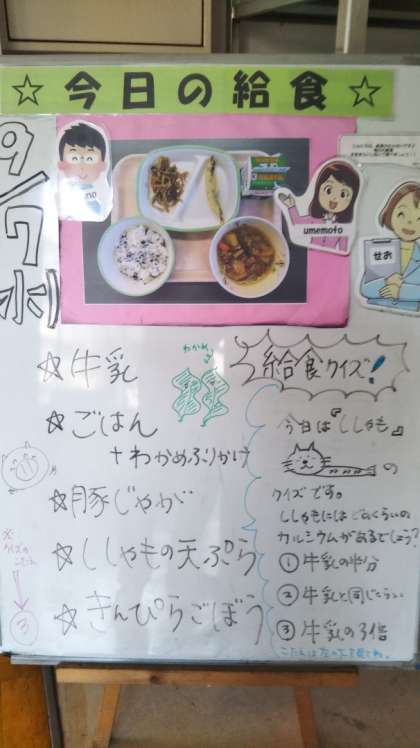 ☆今日の給食☆
9/7
水
umemofo
せお
☆牛乳
わかめ
☆ごはん
+わかめふりかけ
☆豚じゃが
☆ししゃもの天ぷら
☆きんぴらごぼう
※
クイズの
こたえ
③
給食クイズ!
今日は『ししゃも』
の
クイズです。
ししゃもにはどのくらいの
カルシウムがあるでしょう?
①牛乳の半分
②牛乳と同じくらい
③牛乳の3倍
こたえは左の下を見てね。